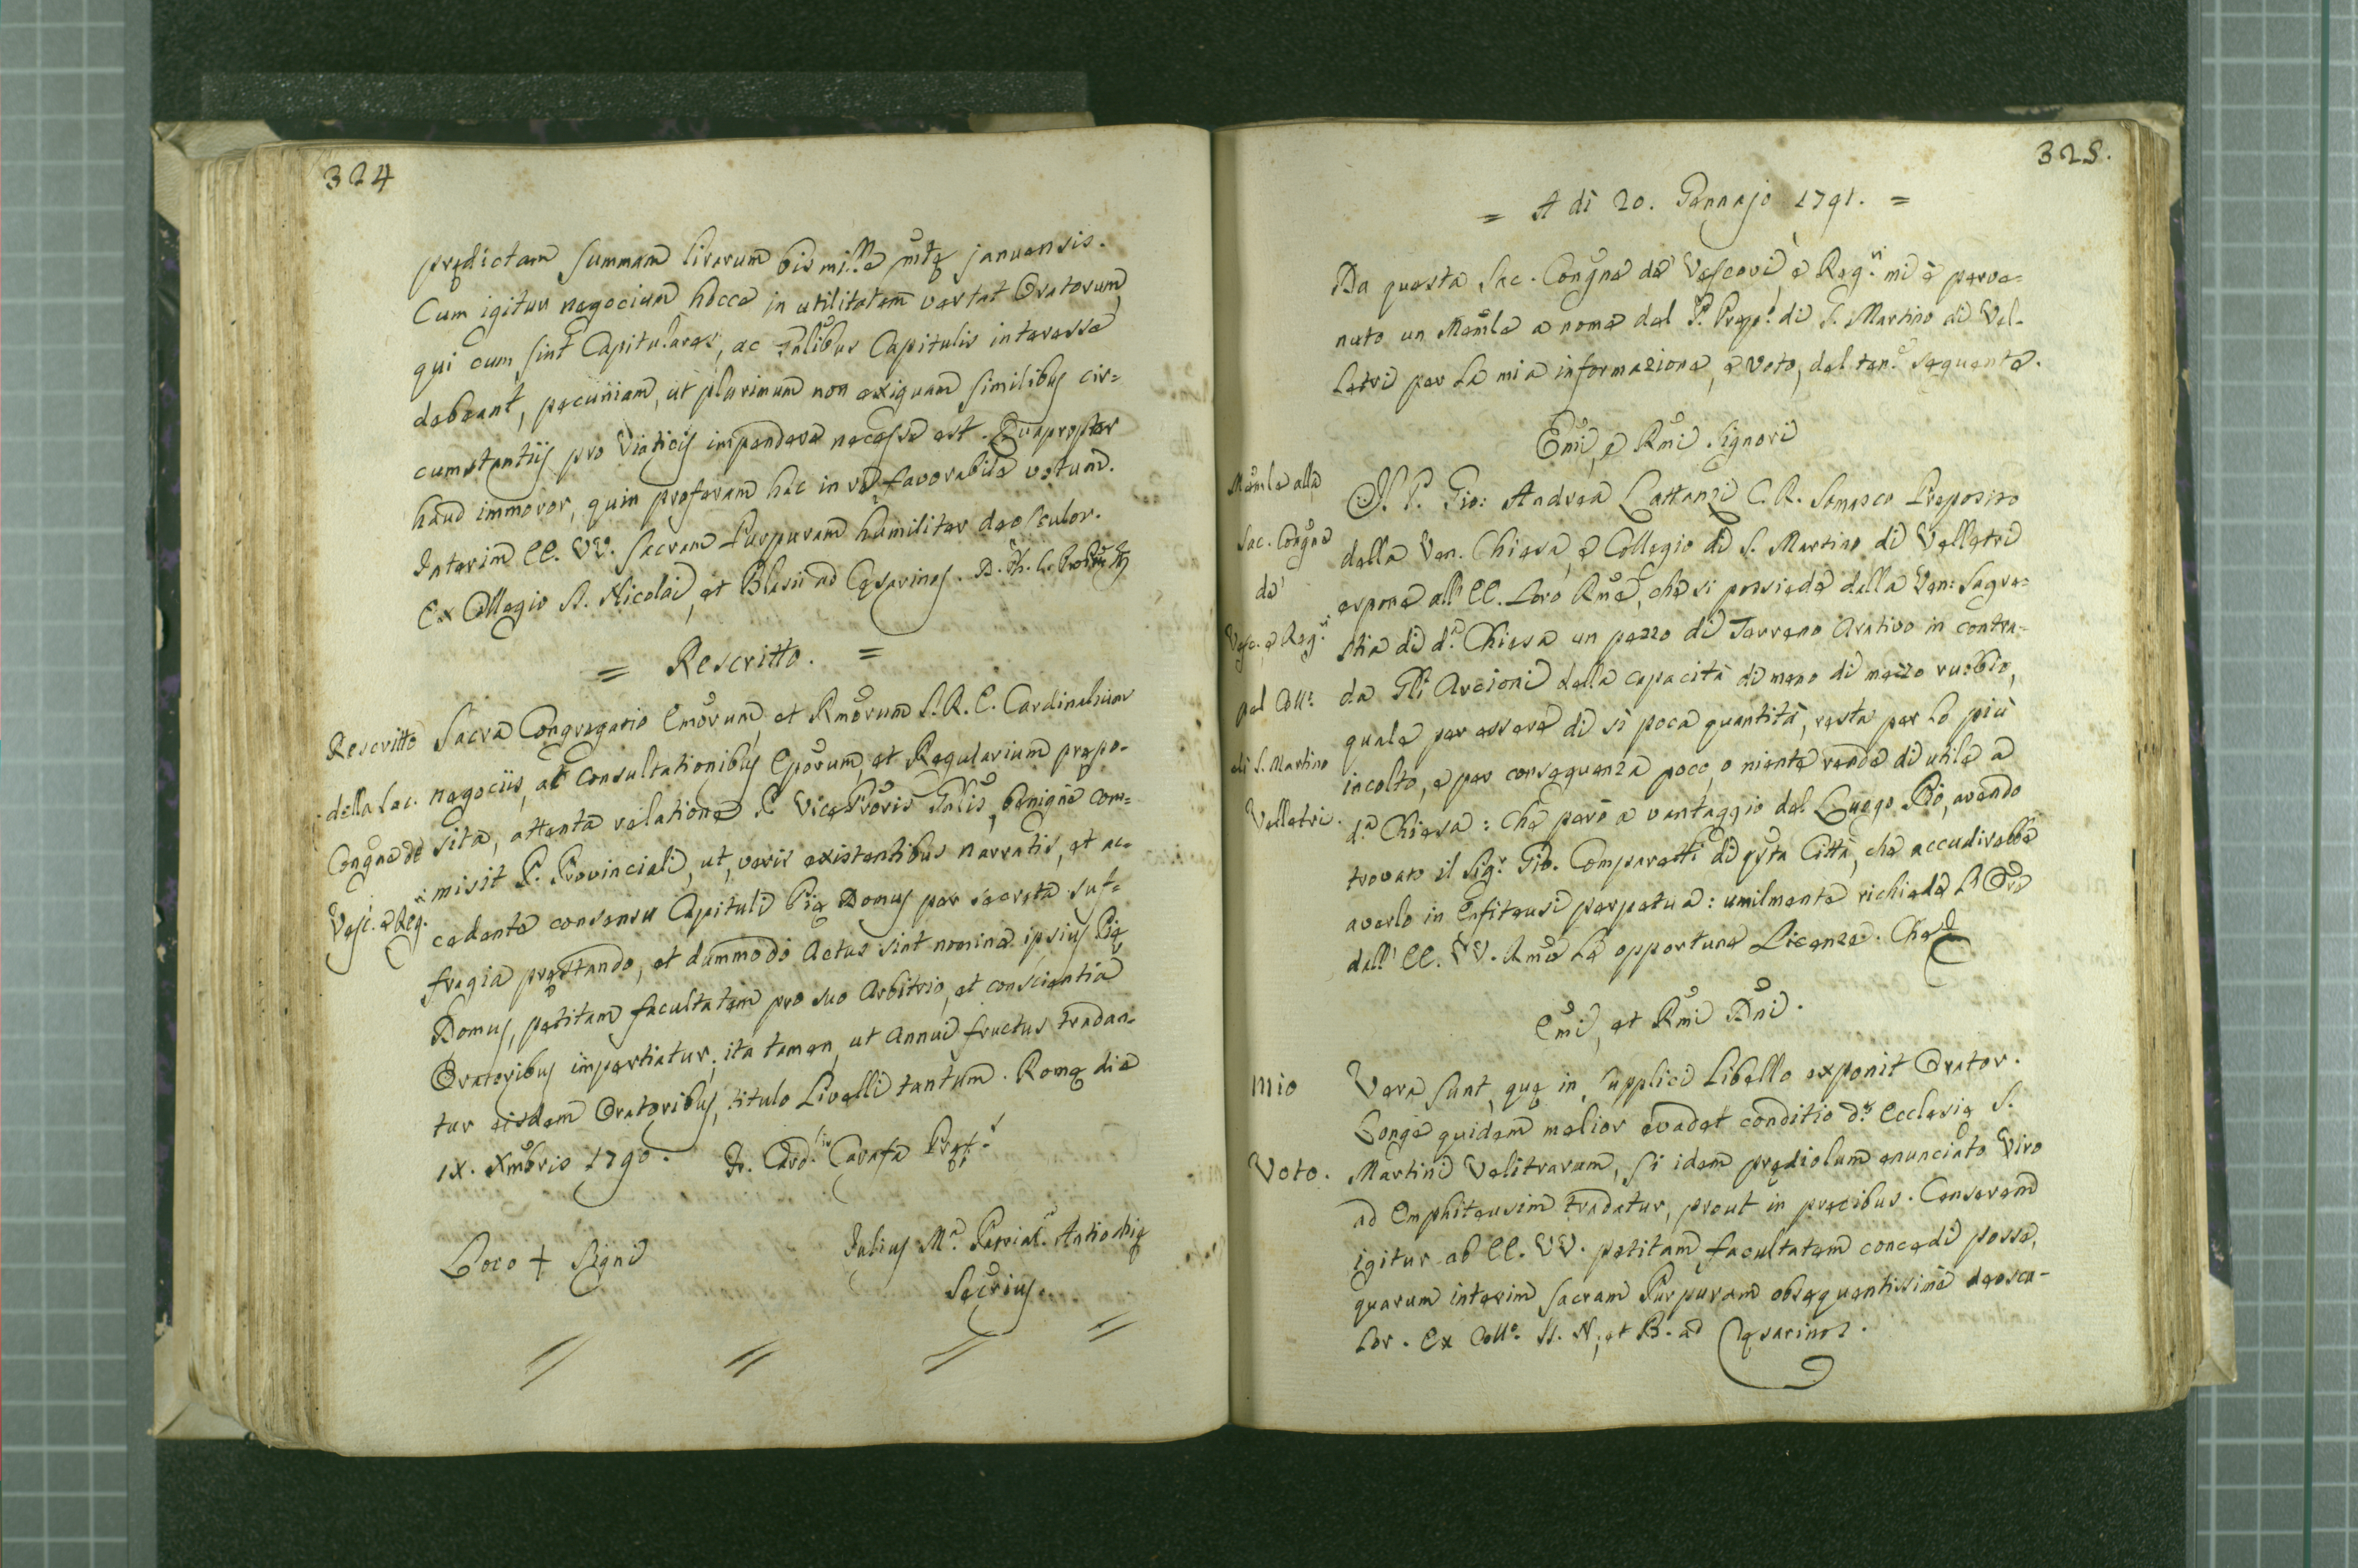 324
prędictam summam lirarum bis mille mtę januensis.
Cum igitur negocium hocce in utilitatem vertat Oratorum,
qui cum sint Capitulares, ac Gnlibus Capitulis interesse
debeant, pecuniam, ut plurimum non exiguam similibus cir=
cumstantijs pro Viaticijs impendere necesse est. Quapropter
haud immoror, quin proferam hac in re favorabile votum.
Interim EE. VV. Sacram Purpuram humiliter deosculor.
Ex Collegio SS. Nicolai, et Blasii ad Cęsarinos.
= Rescritto. =
Rescritto
della Sac.
Congne de
Vesc. e Reg.ri
Sacra Congregatio Emorum, et Rmorum S. R. E. Cardinalium
negociis, ac consultationibus Eporum, et Regularium prępo=
sita, attenta relatione P. Vice Proris Gnlis, benigne com=
misit P. Provinciali, ut, veris existentibus narratis, et ac=
cedente consensu Capituli Pię Domus per secreta suf=
fragia pręstando, et dummodo Actus sint nomine ipsius Pię
Domus, petitam facultatem pro suo Arbitrio, et conscientia
Oratoribus impertiatur; ita tamen, ut Annui fructus tradan=
tur eisdem Oratoribus, titulo Livelli tantum. Romę die
IX. Xmbris 1790. Fr. Card.lis Carafa Pręf.s
Loco + Signi
Julius M.a Patriar. Antiochię
Secrius.
325.
= A dì 20. Gennajo 1791. =
Da questa Sac. Congne de' Vescovi, e Reg.ri mi è perve=
nuto un Memle a nome del P. Prep.o di S. Martino di Vel=
letri per la mia informazione, e voto, del ten.e seguente.
Emi, e Rmi Signori
Memle alla
Sac. Congne
de'
Vesc. e Reg.ri
pel Coll.o
di S. Martino
Velletri.
Il P. Gio: Andrea Lattanzi C. R. Somasco Preposito
della Ven. Chiesa, e Collegio di S. Martino di Velletri
espone all' EE. Loro Rme, che si possiede dalla Ven: Sagre=
stia di d.a Chiesa un pezzo di Terreno Arativo in contra=
da Gli Arcioni della capacità di meno di mezzo rubbio,
quale per essere di sì poca quantità, resta per lo più
incolto, e per conseguenza poco, o niente rende di utile a
d.a Chiesa: Che però a vantaggio del Luogo Pio, avendo
trovato il Sig.r Gio. Comparetti di qsta Città, che accudirebbe
averlo in Enfiteusi perpetua: umilmente richiede l'Ore
dall' EE. VV. Rme le opportune Licenze. Che
Emi, et Rmi Dni.
Mio
Voto.
Vera sunt, quę in supplici Libello exponit Orator.
Longe quidem melior evadet conditio d.ę Ecclesię S.
Martini Velitrarum, si idem prędiolum enunciato Viro
ad Emphiteusim tradatur, prout in precibus. Censerem
igitur ab EE. VV. petitam facultatem concedi posse,
quarum interim Sacram Purpuram obsequentissime deoscu=
lor. Ex Coll.o SS. N., et B. ad Cęsarinos.